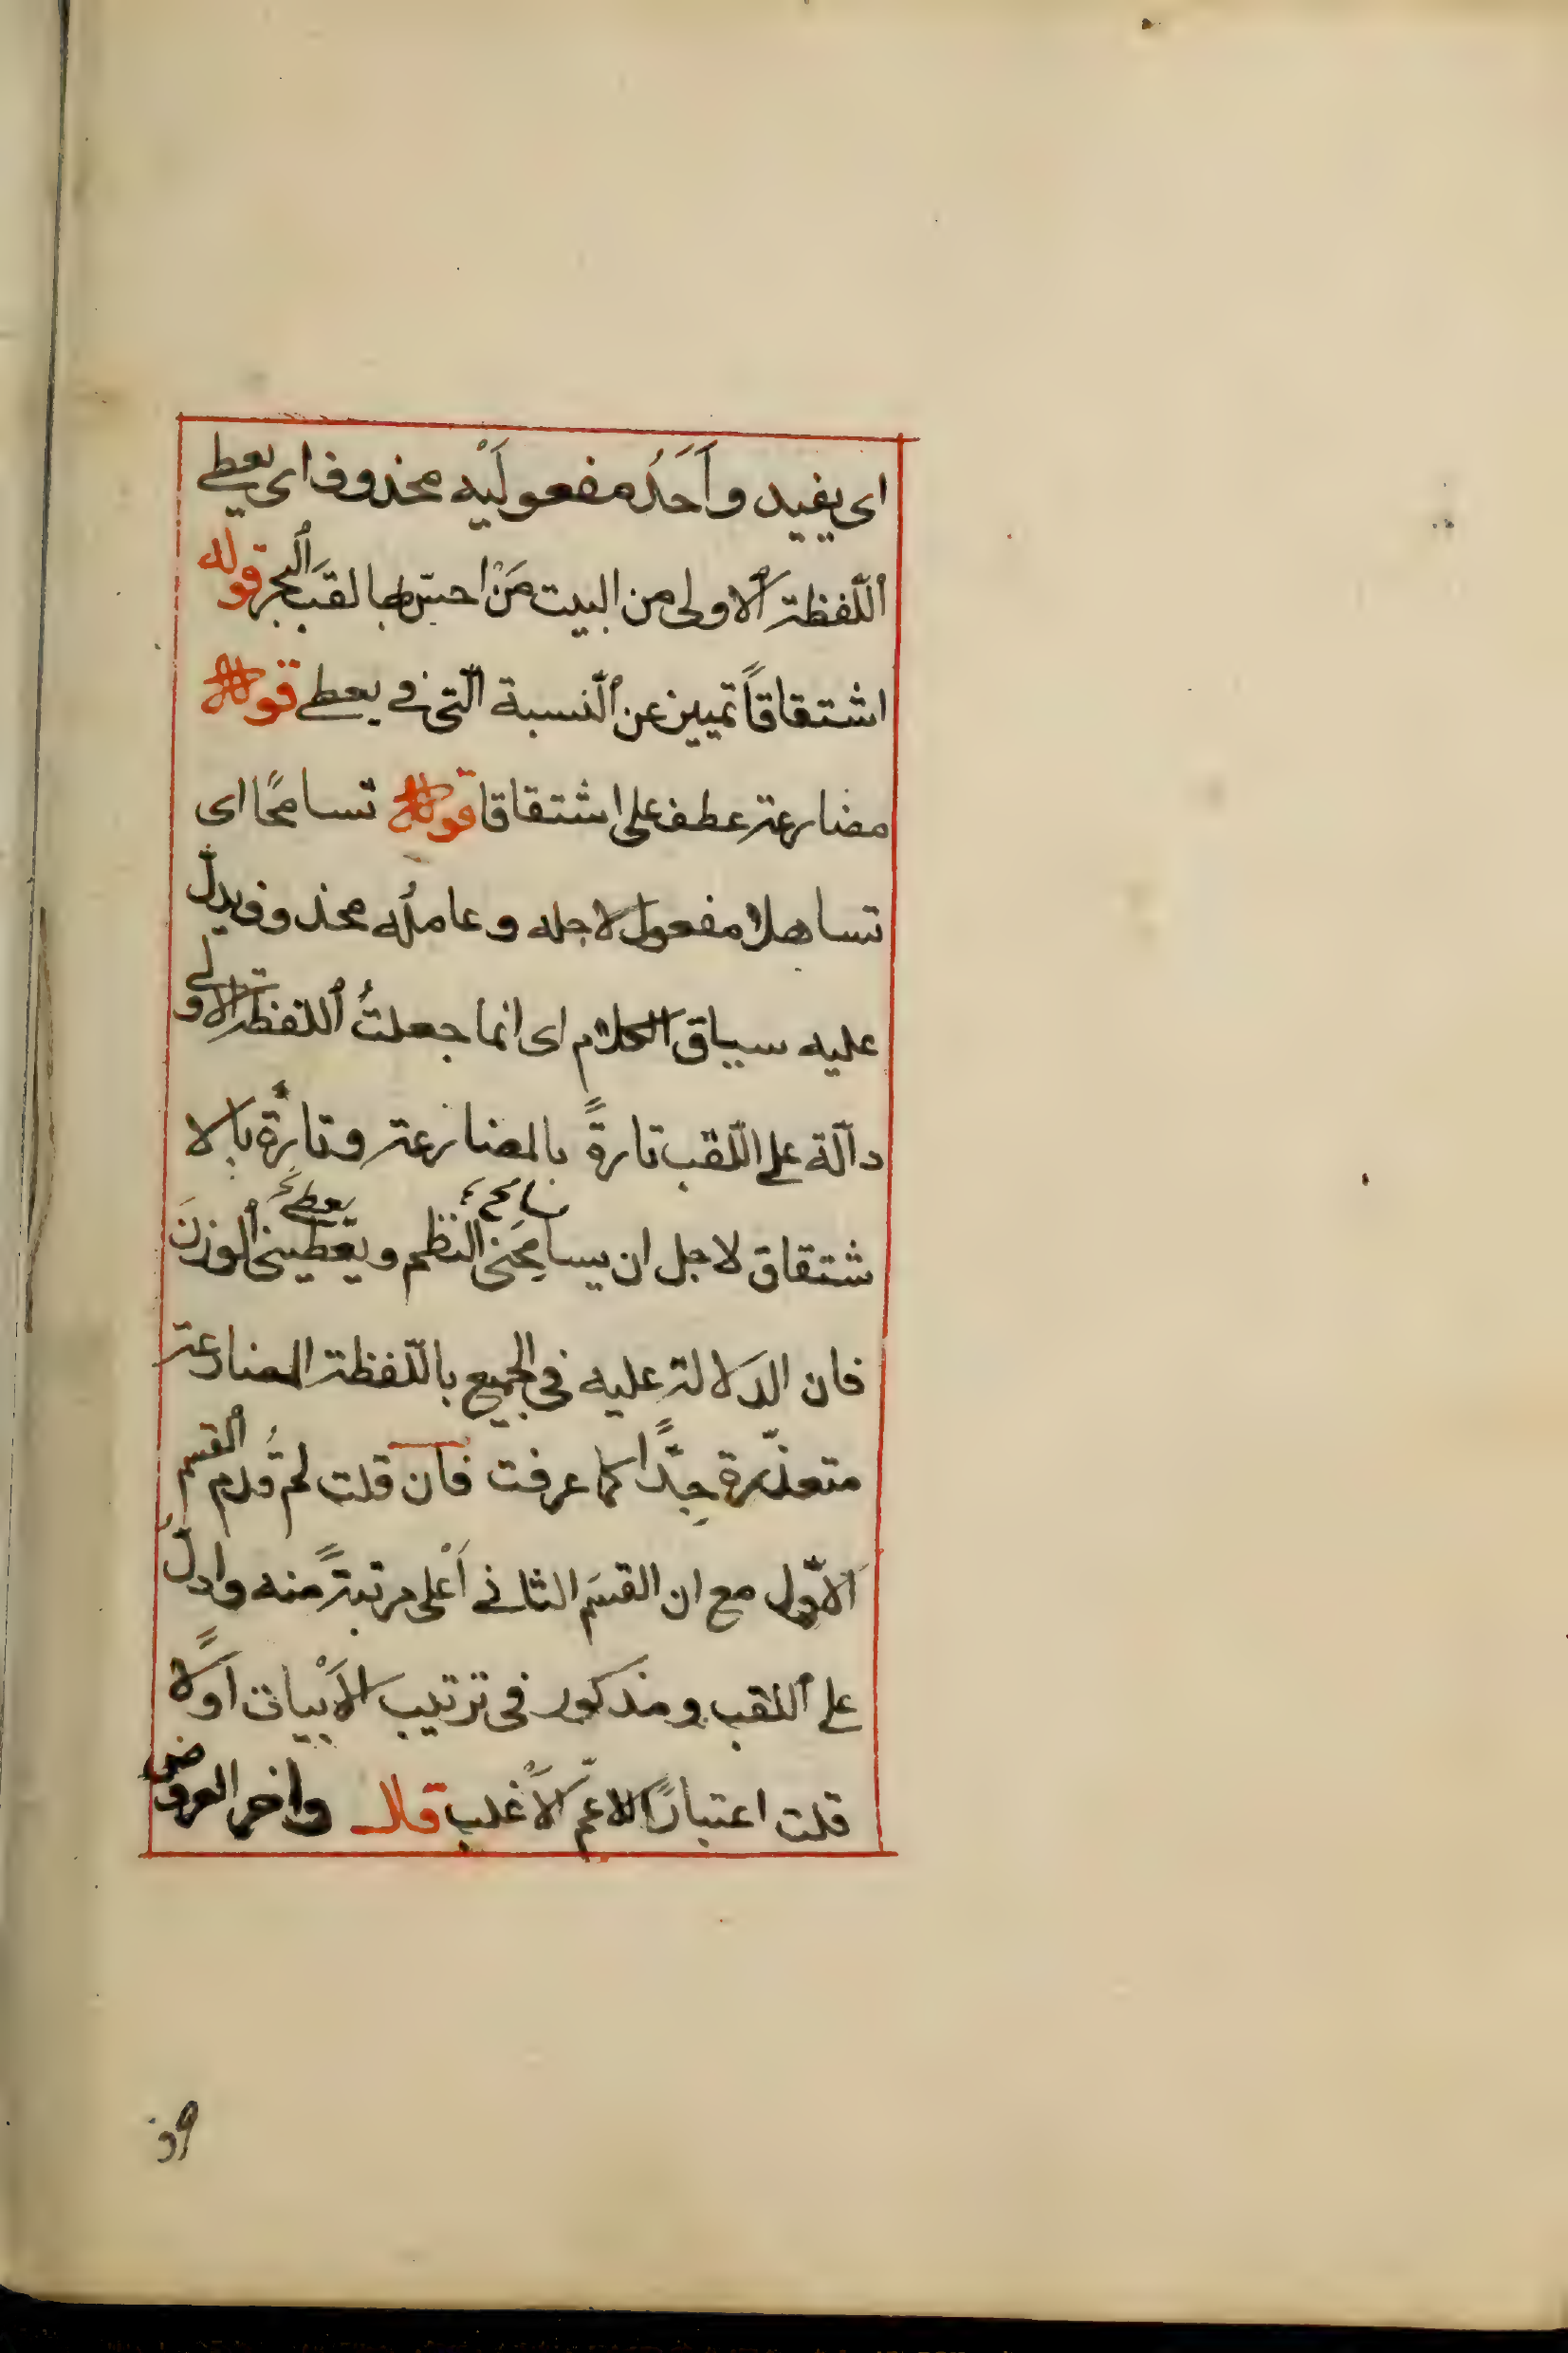 اى يفيد وأَحَدُ مفعولَيْه محذوف اى يعطى
اللّفظة الاولى من البيت مَنْ احسّ بها لقبَ البحر قوله
اشتقاقاً تمييز عن النّسبة الّتى فى يعطى قوله
مضارعة عطف على اشتقاقا قوله تسامحًا اى
تساهلا مفعول لاجله وعاملُه محذوف ويدلّ
عليه سياق الكلام اى انما جعلتُ اللفظة الاولى
دالّة على اللّقب تارةً بالمضارعة وتارة بالا
شتقاق لاجل ان يسامحَنى النظم ويعطينى الوزنَ
فان الدلالة عليه فى الجميع باللّفظة المضارعة
متعذّرة جدًّا كما عرفت فان قلت لم قُدم القسم
الاوّل مع ان القسَم الثانى أعْلى مرتبةً منه وادلُّ
على اللقب ومذكور فى ترتيب الأبْيات اوّلاً
قلت اعتبارًا للاعمّ الأغْلب قال واخر العروض